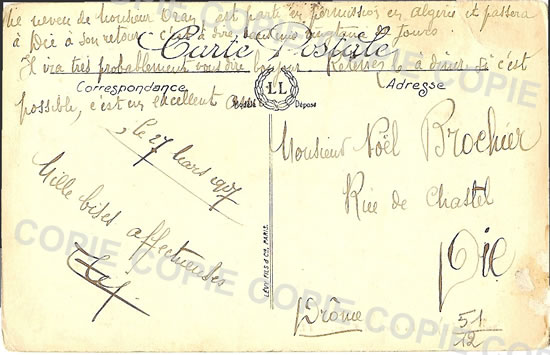 Le neveu de monsieur Oran est parti en permission en Algérie et passera
à Die à son retour c'est à dire dans une vingtaine de jours
Carte Postale
Il ira très probablement vous dire bonjour. Retenez le à diner si c'est
Correspondance
Adresse
possible, c'est un excellent
LL
Modèle Déposé
le 27 mars 1907
Mille bises affectueuses
LÉVY FILS & Cie, PARIS.
Monsieur Noël Brochier
Rue de Chastel
Die
Drôme
51
12
COPIE COPIE COPIE COPIE COPIE